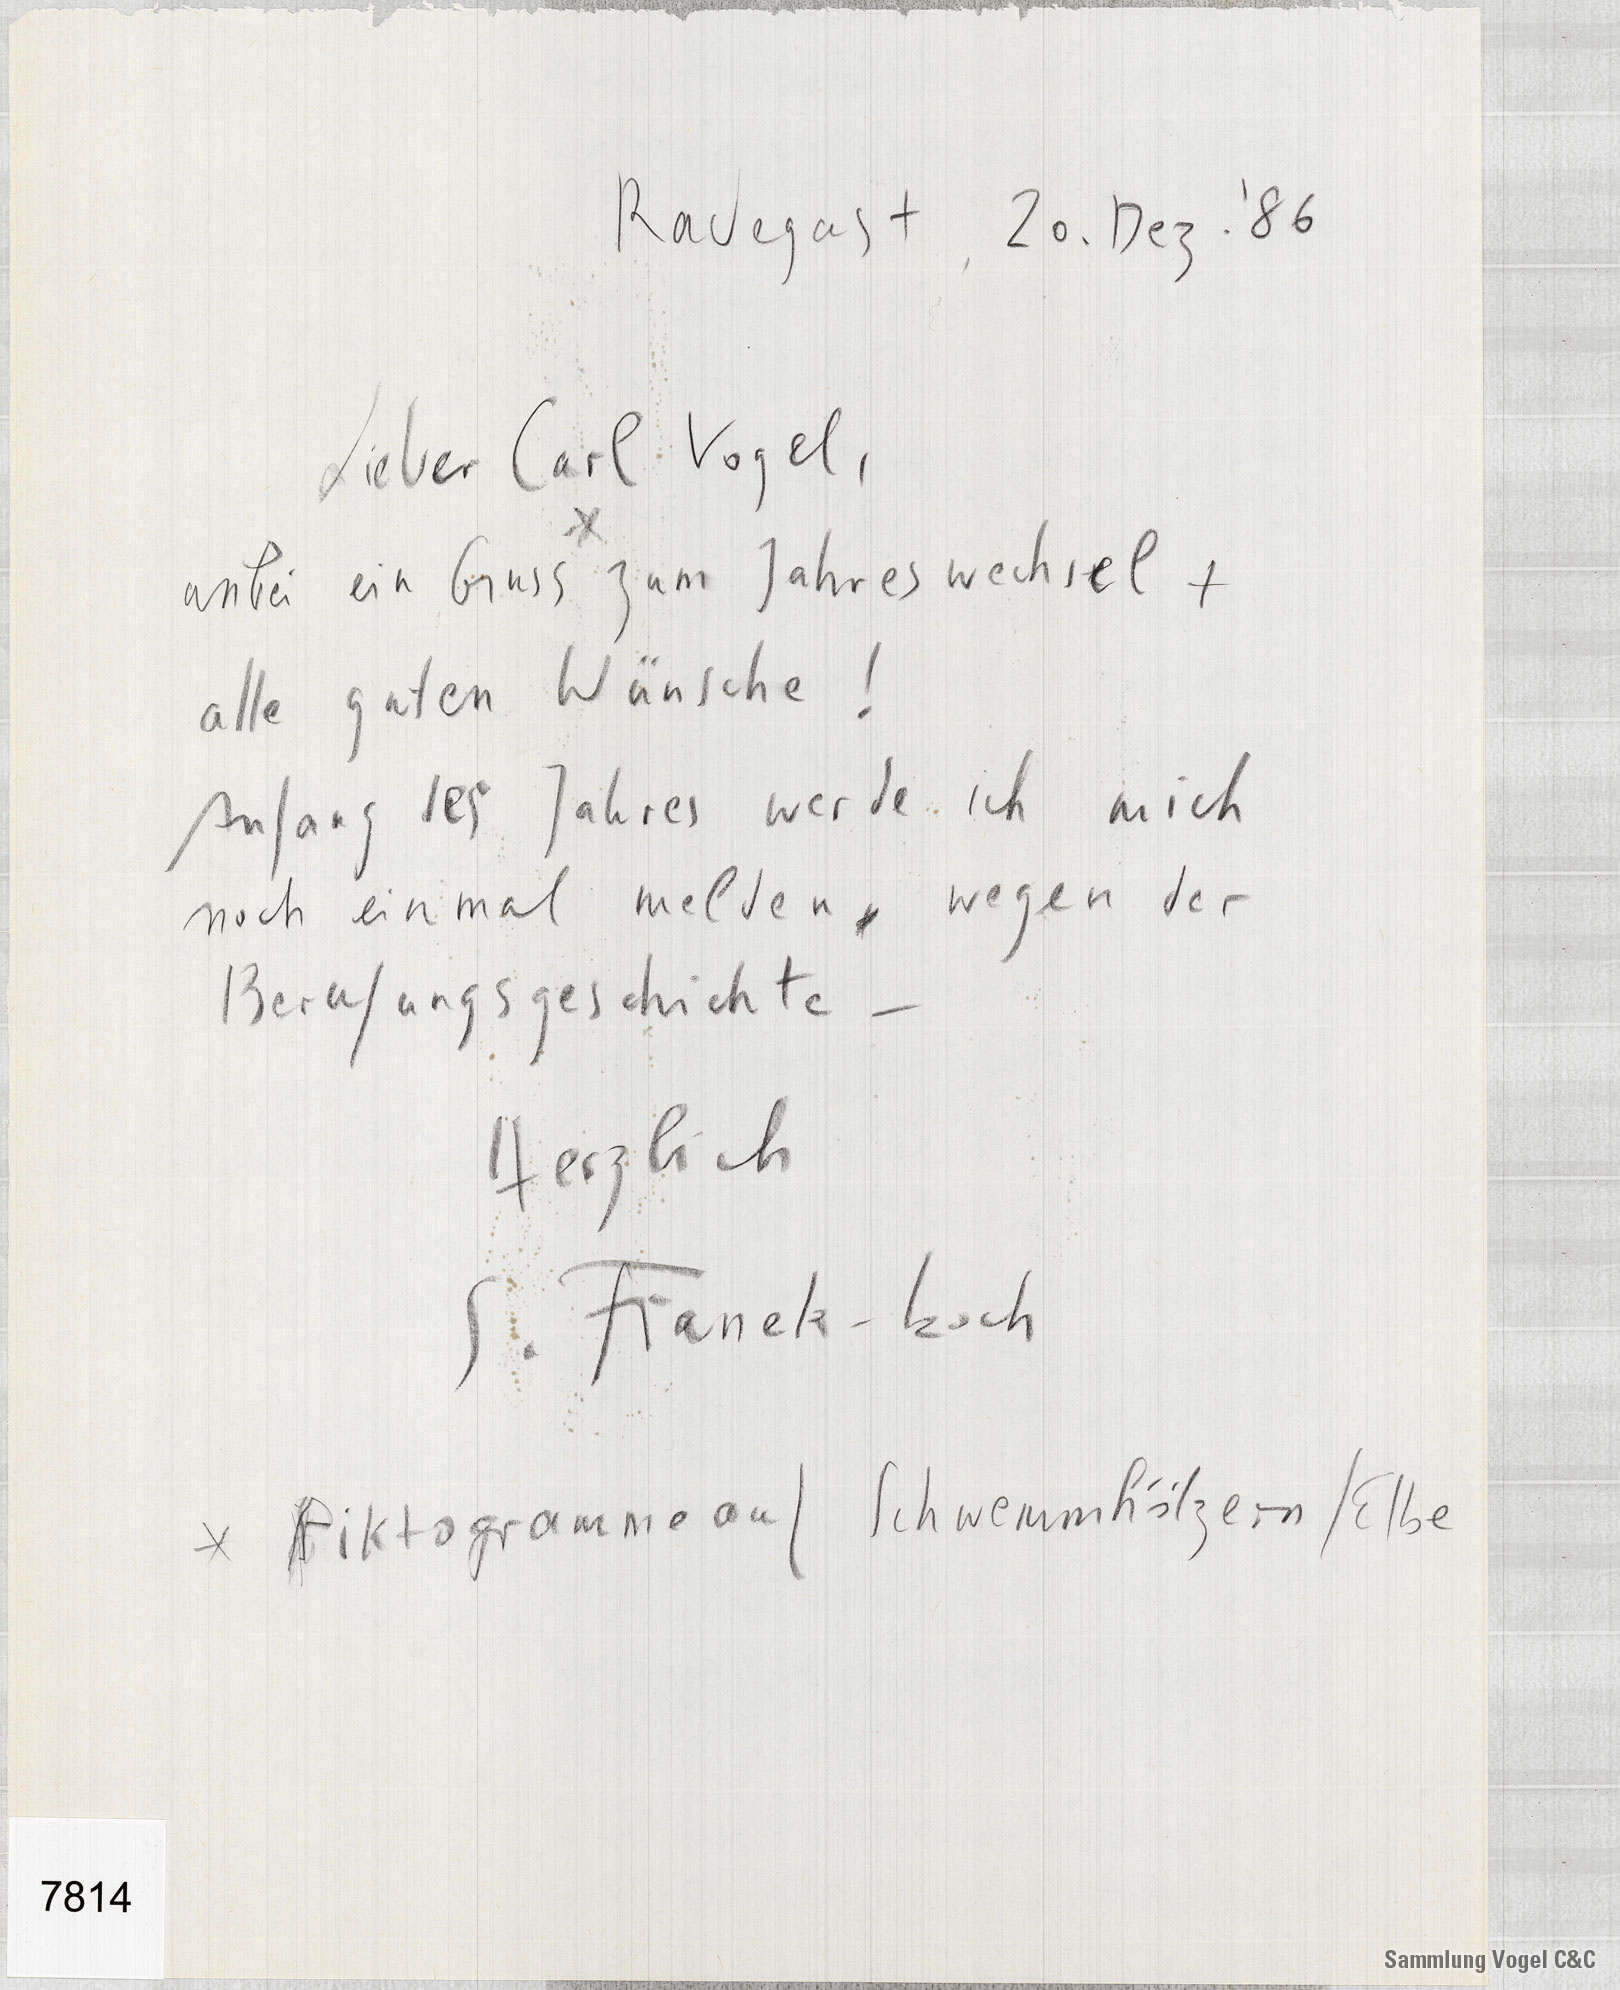 Radegast, 20. Dez. '86
Lieber Carl Vogel,
*
anbei ein Gruss zum Jahreswechsel +
alle guten Wünsche!
Anfang des Jahres werde ich mich
noch einmal melden, wegen der
Berufungsgeschichte –
Herzlich
S. Franek-Koch
* Piktogramme auf Schwemmhölzern / Elbe
7814
Sammlung Vogel C&C